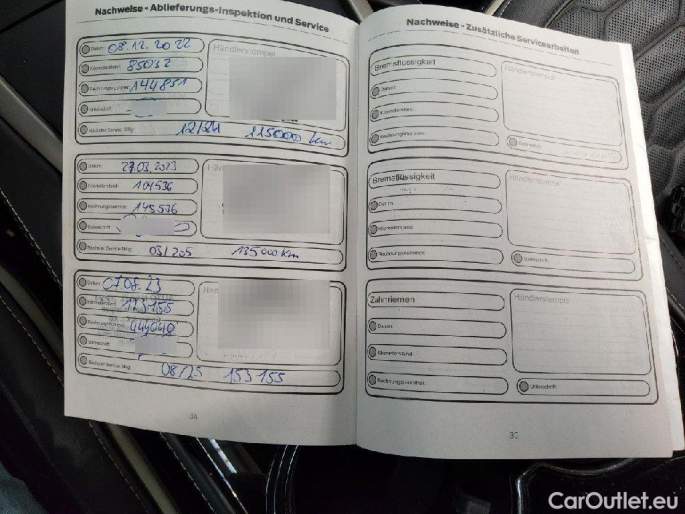 Nachweise - Ablieferungs-Inspektion und Service
Datum 08.12.2022
Händlerstempel
Kilometerstand 85032
144851
Nächster Service fällig 12/24 115000 km
Datum 27.03.2023
Kilometerstand 104536
Rechnungsnummer 145576
Nächster Service fällig 03/205 135000 km
Datum 07.08.23
123155
Nächster Service fällig 08/25 153155
34
Nachweise - Zusätzliche Servicearbeiten
Bremsflüssigkeit
Händlerstempel
Datum
Kilometerstand
Rechnungsnummer
Unterschrift
Bremsflüssigkeit
Händlerstempel
Datum
Kilometerstand
Rechnungsnummer
Unterschrift
Zahnriemen
Händlerstempel
Datum
Kilometerstand
Rechnungsnummer
Unterschrift
35
CarOutlet.eu